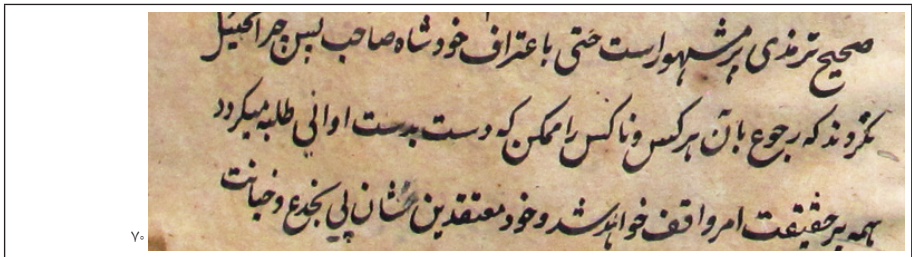 صحیح ترمذی پر مشهور است حتی باعتراف خود شاه صاحب پس چرا تخییل
نکردند که رجوع بآن هر کس و ناکس را ممکن که دست بدست ادانی طلبه میکردد
همه بر حقیقت امر واقف خواهند شد و خود معتقدین شان پی بخدع و خیانت
۷۰